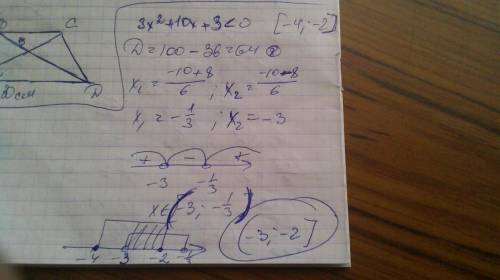 C
D
см
3x²+10x+3<0 [-4;-2]
D=100-36=64
x₁=(-10+8)/6; x₂=(-10-8)/6
x₁=-1/3; x₂=-3
+ - +
-3 -1/3
x∈(-3;-1/3)
(-3;-2]
-4 -3 -2